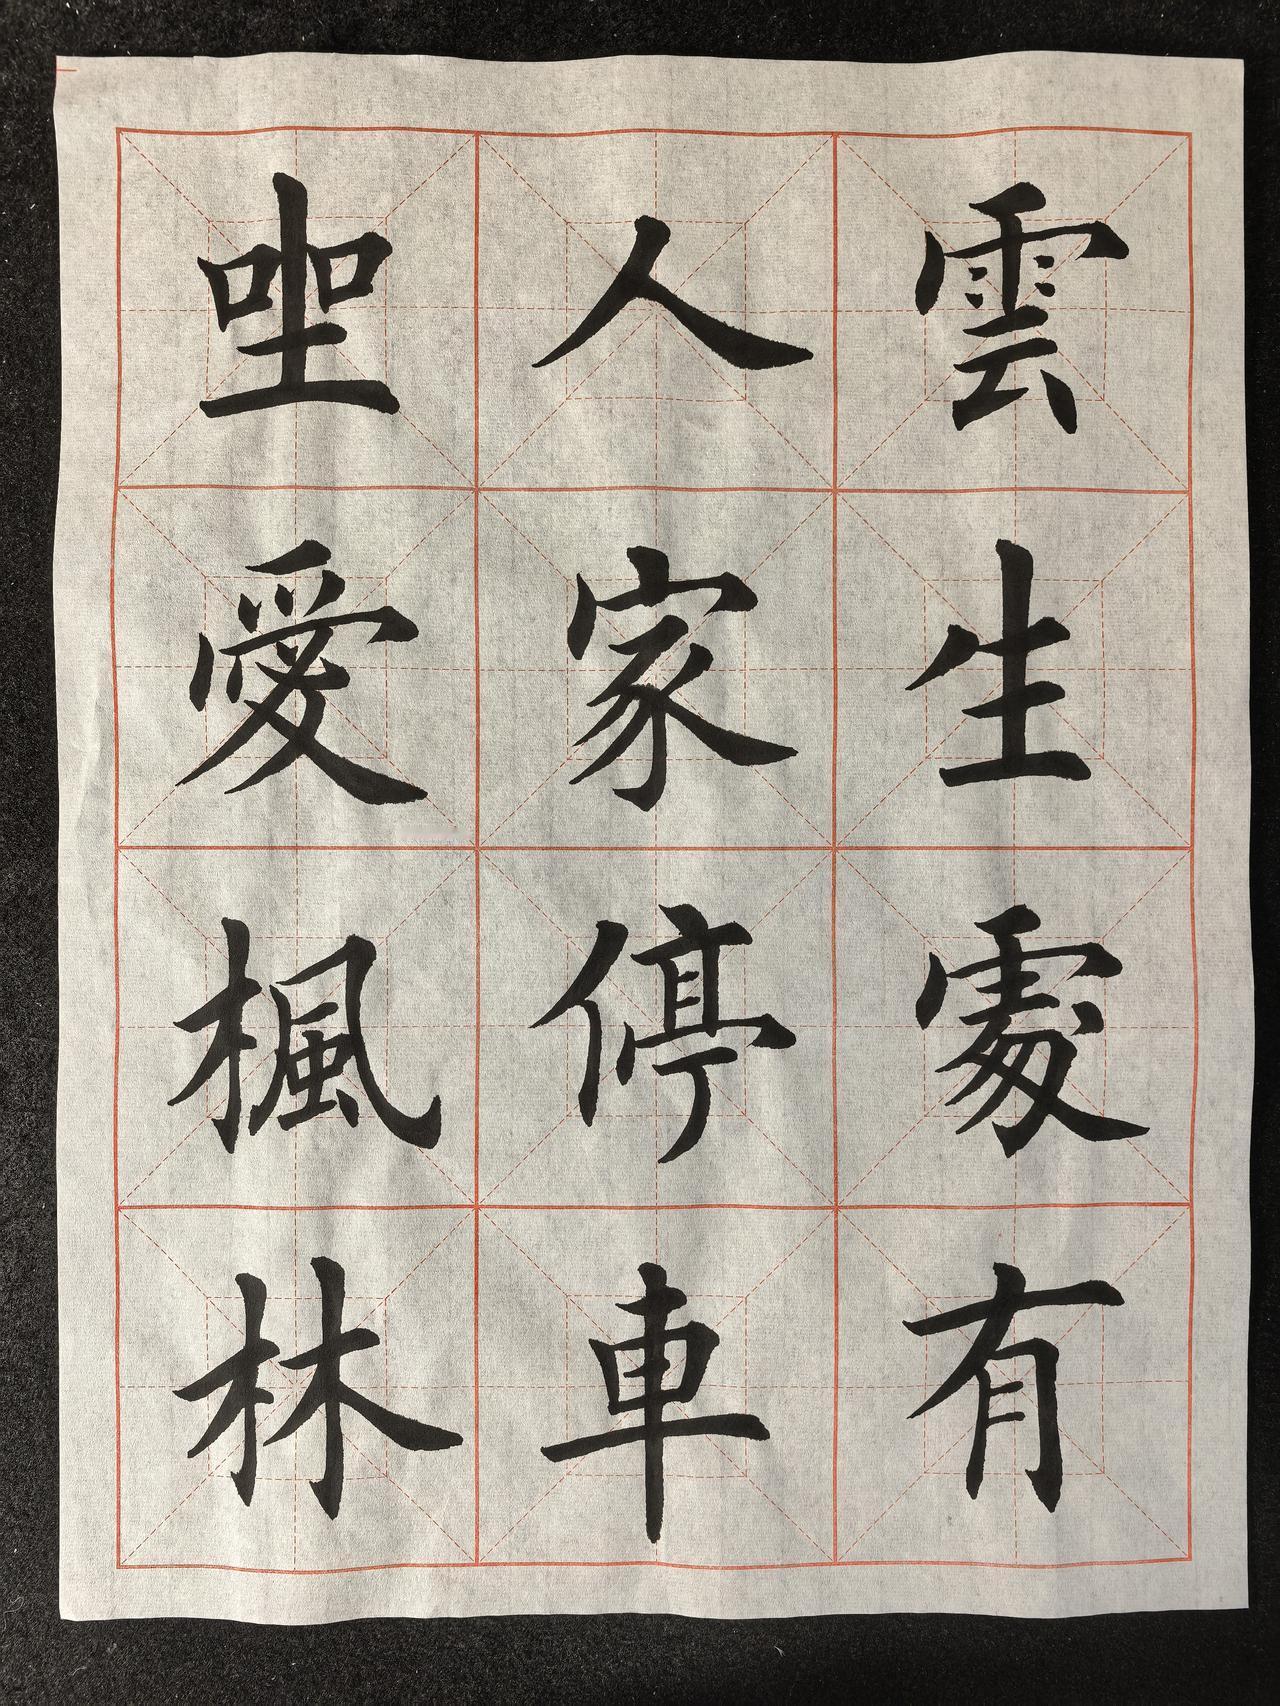 雲生處有
人家停車
坐愛楓林